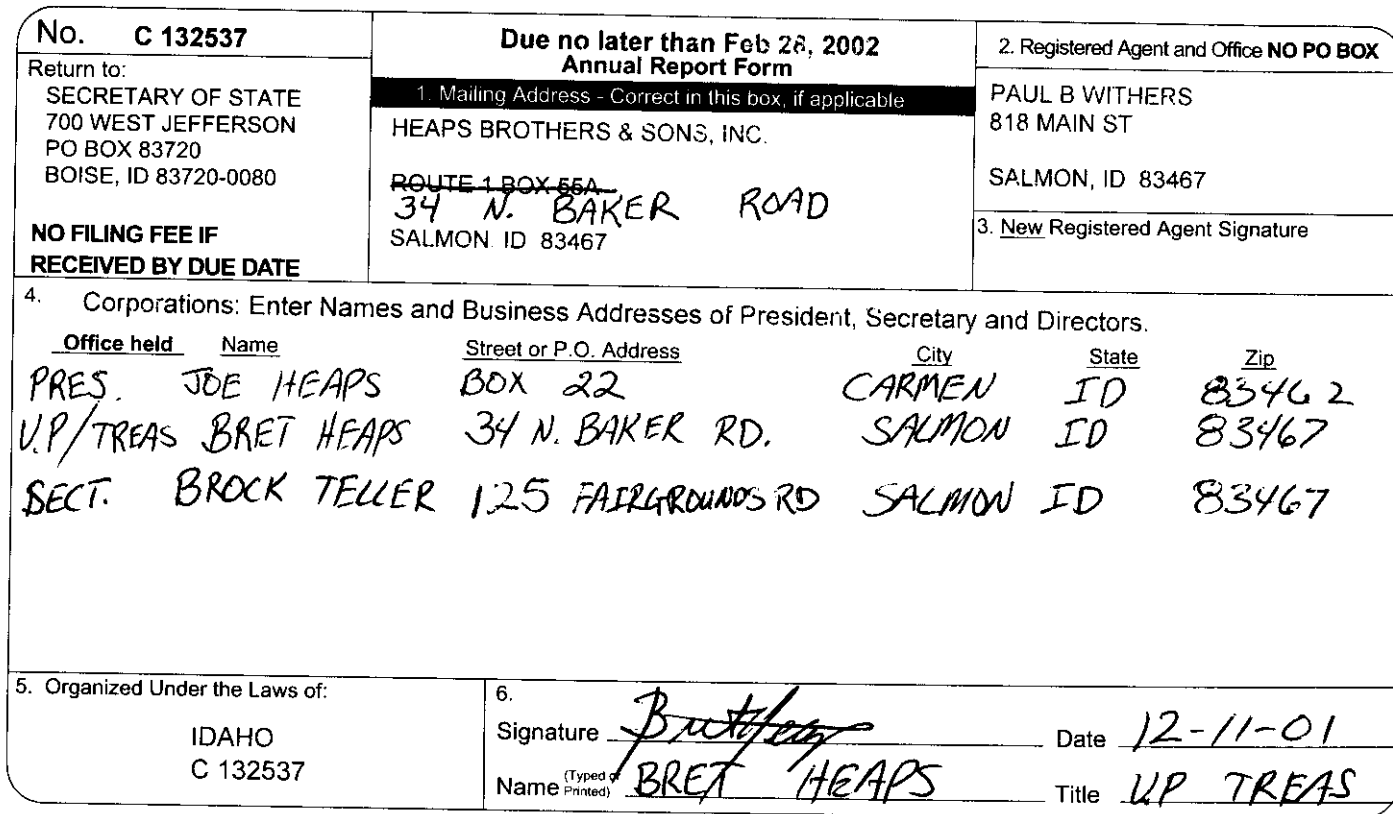 No. C 132537
Return to:
SECRETARY OF STATE
700 WEST JEFFERSON
PO BOX 83720
BOISE, ID 83720-0080
NO FILING FEE IF
RECEIVED BY DUE DATE
Due no later than Feb 28, 2002
Annual Report Form
1. Mailing Address - Correct in this box, if applicable
HEAPS BROTHERS & SONS, INC.
ROUTE 1 BOX 55A
34 N. BAKER ROAD
SALMON ID 83467
2. Registered Agent and Office NO PO BOX
PAUL B WITHERS
818 MAIN ST
SALMON, ID 83467
3. New Registered Agent Signature
4. Corporations: Enter Names and Business Addresses of President, Secretary and Directors.
Office held Name Street or P.O. Address City State Zip
PRES. JOE HEAPS BOX 22 CARMEN ID 83462
V.P/TREAS BRET HEAPS 34 N. BAKER RD. SALMON ID 83467
SECT. BROCK TELLER 125 FAIRGROUNDS RD SALMON ID 83467
5. Organized Under the Laws of:
IDAHO
C 132537
6.
Signature Bret Heaps Date 12-11-01
Name (Typed or Printed) BRET HEAPS Title V.P TREAS